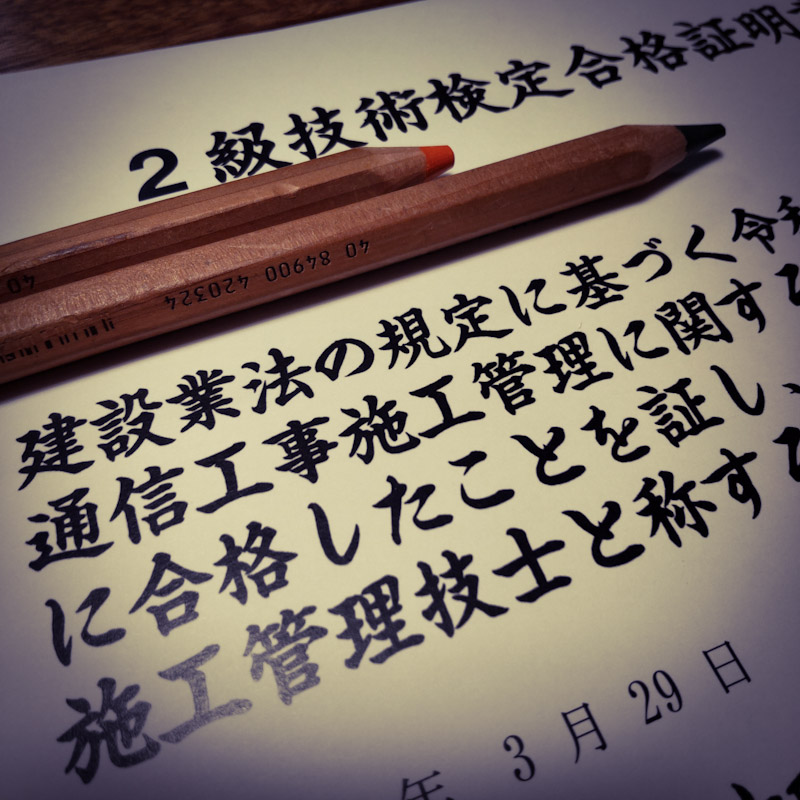 2級技術検定合格証明
40 84900 420324
40
建設業法の規定に基づく令和
通信工事施工管理に関する
に合格したことを証し、
施工管理技士と称する
年 3 月 29 日